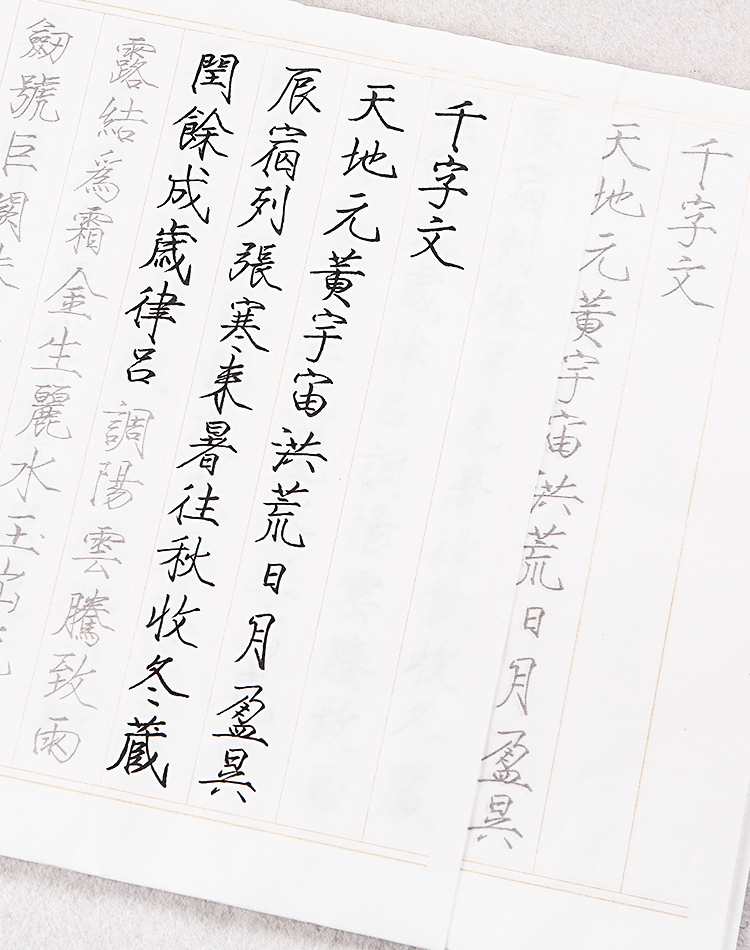 千字文
天地元黄宇宙洪荒日月盈昃
千字文
天地元黄宇宙洪荒日月盈昃
辰宿列張寒来暑往秋收冬蔵
閏餘成歳律呂調陽雲騰致雨
露結爲霜金生麗水玉
劔號巨闕